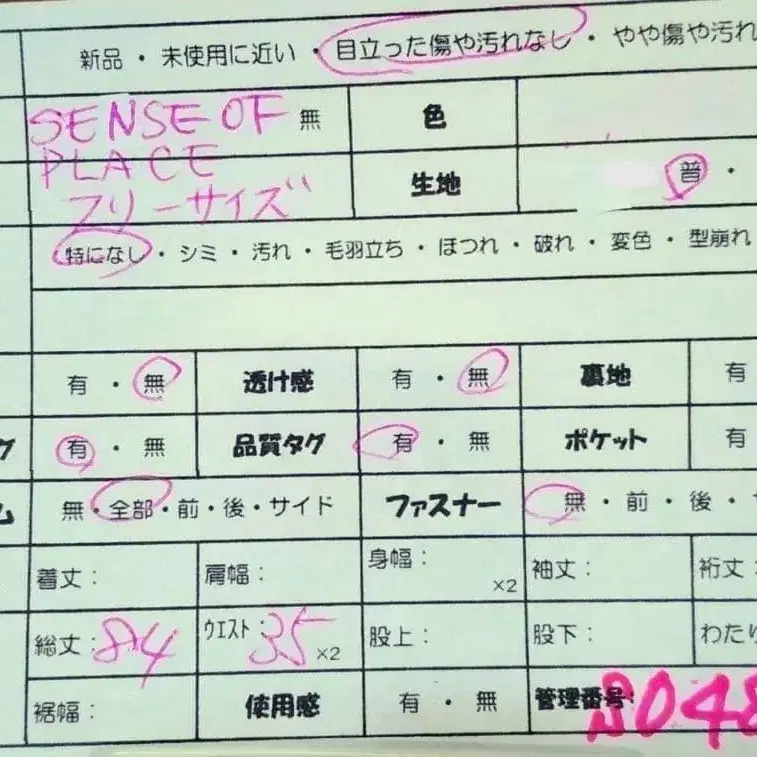 新品・未使用に近い・目立った傷や汚れなし・やや傷や汚れ
SENSE OF 無 色
PLACE 生地 普・
フリーサイズ
特になし・シミ・汚れ・毛羽立ち・ほつれ・破れ・変色・型崩れ
有・無 透け感 有・無 裏地 有
グ 有・無 品質タグ 有・無 ポケット 有
ム 無・全部・前・後・サイド ファスナー 無・前・後・
着丈: 肩幅: 身幅: ×2 袖丈: 裄丈:
総丈:84 ウエスト:35 ×2 股上: 股下: わたり
裾幅: 使用感 有・無 管理番号:8048